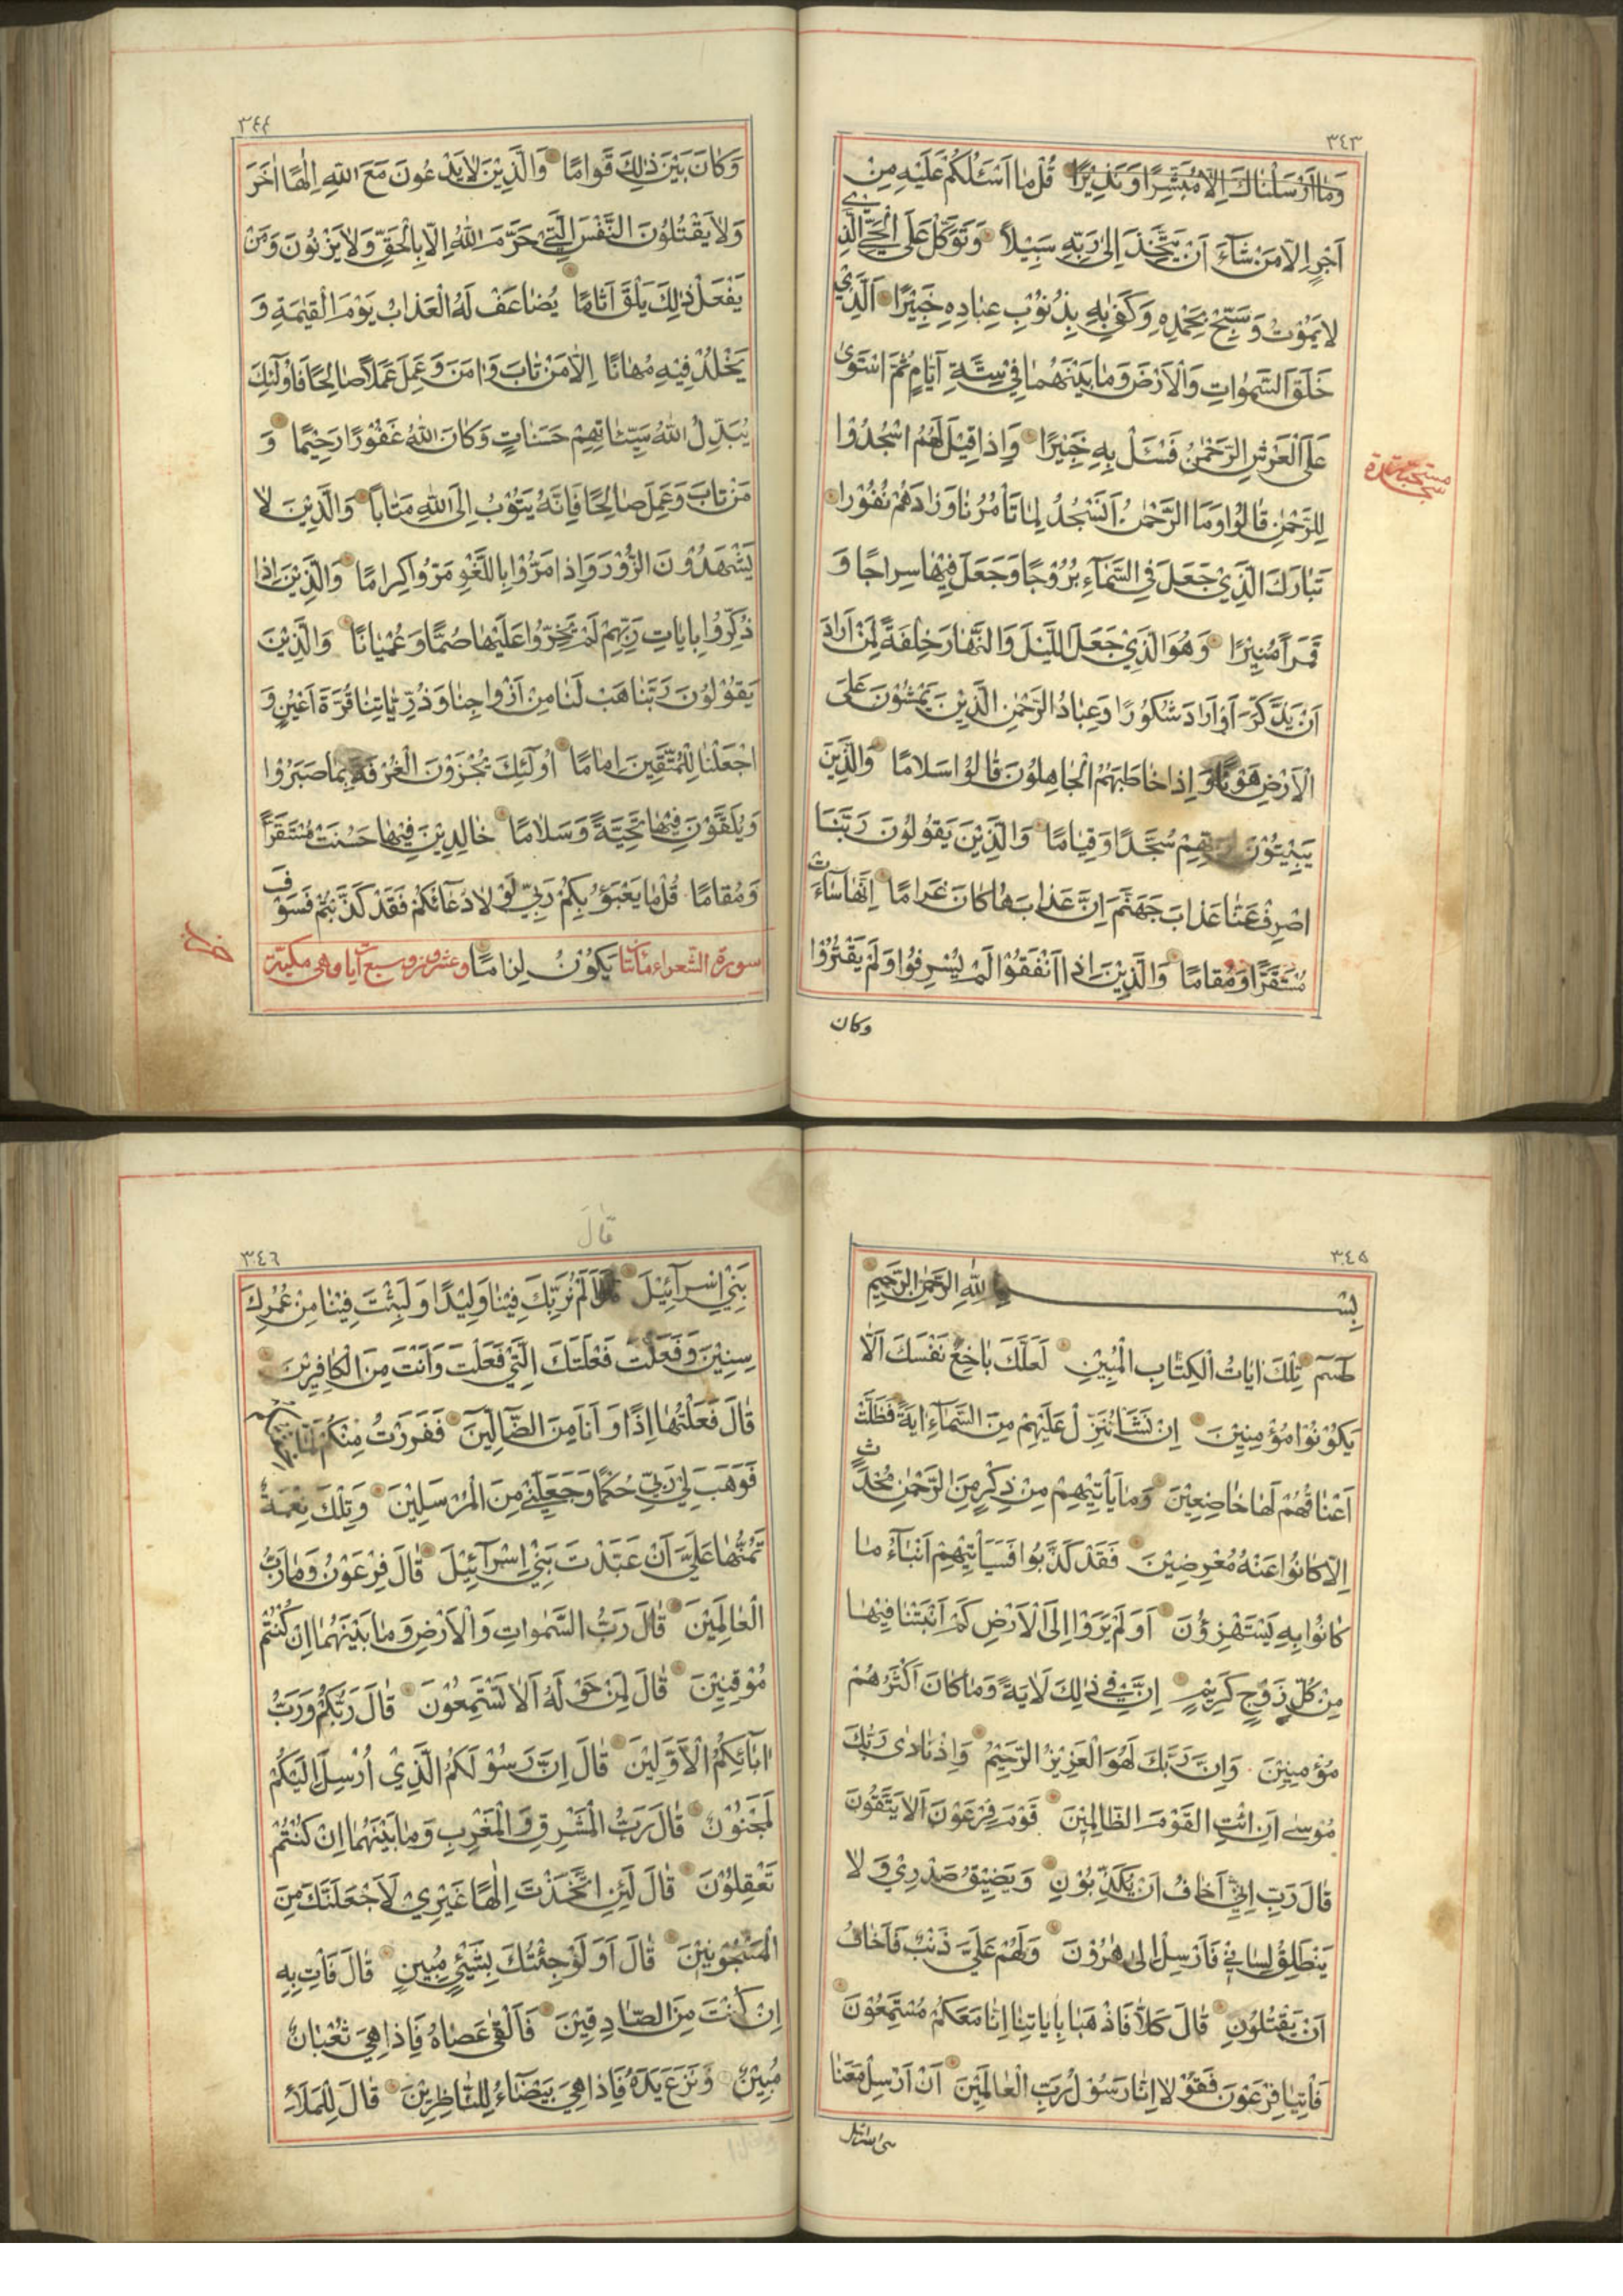 ٣٤٣
وَمَا أَرْسَلْنَاكَ إِلَّا مُبَشِّرًا وَنَذِيرًا قُلْ مَا أَسْئَلُكُمْ عَلَيْهِ مِنْ
أَجْرٍ إِلَّا مَنْ شَاءَ أَنْ يَتَّخِذَ إِلَى رَبِّهِ سَبِيلًا وَتَوَكَّلْ عَلَى الْحَيِّ الَّذِي
لَا يَمُوتُ وَسَبِّحْ بِحَمْدِهِ وَكَفَى بِهِ بِذُنُوبِ عِبَادِهِ خَبِيرًا الَّذِي
خَلَقَ السَّمٰوَاتِ وَالْأَرْضَ وَمَا بَيْنَهُمَا فِي سِتَّةِ أَيَّامٍ ثُمَّ اسْتَوَى
عَلَى الْعَرْشِ الرَّحْمٰنُ فَسْئَلْ بِهِ خَبِيرًا وَإِذَا قِيلَ لَهُمُ اسْجُدُوا
لِلرَّحْمٰنِ قَالُوا وَمَا الرَّحْمٰنُ أَنَسْجُدُ لِمَا تَأْمُرُنَا وَزَادَهُمْ نُفُورًا
مستحبة سجدة
تَبَارَكَ الَّذِي جَعَلَ فِي السَّمَاءِ بُرُوجًا وَجَعَلَ فِيهَا سِرَاجًا وَ
قَمَرًا مُنِيرًا وَهُوَ الَّذِي جَعَلَ اللَّيْلَ وَالنَّهَارَ خِلْفَةً لِمَنْ أَرَادَ
أَنْ يَذَّكَّرَ أَوْ أَرَادَ شُكُورًا وَعِبَادُ الرَّحْمٰنِ الَّذِينَ يَمْشُونَ عَلَى
الْأَرْضِ هَوْنًا وَإِذَا خَاطَبَهُمُ الْجَاهِلُونَ قَالُوا سَلَامًا وَالَّذِينَ
يَبِيتُونَ لِرَبِّهِمْ سُجَّدًا وَقِيَامًا وَالَّذِينَ يَقُولُونَ رَبَّنَا
اصْرِفْ عَنَّا عَذَابَ جَهَنَّمَ إِنَّ عَذَابَهَا كَانَ غَرَامًا إِنَّهَا سَاءَتْ
مُسْتَقَرًّا وَمُقَامًا وَالَّذِينَ إِذَا أَنْفَقُوا لَمْ يُسْرِفُوا وَلَمْ يَقْتُرُوا
وكان
٣٤٤
وَكَانَ بَيْنَ ذٰلِكَ قَوَامًا وَالَّذِينَ لَا يَدْعُونَ مَعَ اللهِ إِلٰهًا آخَرَ
وَلَا يَقْتُلُونَ النَّفْسَ الَّتِي حَرَّمَ اللهُ إِلَّا بِالْحَقِّ وَلَا يَزْنُونَ وَمَنْ
يَفْعَلْ ذٰلِكَ يَلْقَ أَثَامًا يُضَاعَفْ لَهُ الْعَذَابُ يَوْمَ الْقِيٰمَةِ وَ
يَخْلُدْ فِيهِ مُهَانًا إِلَّا مَنْ تَابَ وَآمَنَ وَعَمِلَ عَمَلًا صَالِحًا فَأُولٰئِكَ
يُبَدِّلُ اللهُ سَيِّئَاتِهِمْ حَسَنَاتٍ وَكَانَ اللهُ غَفُورًا رَحِيمًا وَ
مَنْ تَابَ وَعَمِلَ صَالِحًا فَإِنَّهُ يَتُوبُ إِلَى اللهِ مَتَابًا وَالَّذِينَ لَا
يَشْهَدُونَ الزُّورَ وَإِذَا مَرُّوا بِاللَّغْوِ مَرُّوا كِرَامًا وَالَّذِينَ إِذَا
ذُكِّرُوا بِآيَاتِ رَبِّهِمْ لَمْ يَخِرُّوا عَلَيْهَا صُمًّا وَعُمْيَانًا وَالَّذِينَ
يَقُولُونَ رَبَّنَا هَبْ لَنَا مِنْ أَزْوَاجِنَا وَذُرِّيَّاتِنَا قُرَّةَ أَعْيُنٍ وَ
اجْعَلْنَا لِلْمُتَّقِينَ إِمَامًا أُولٰئِكَ يُجْزَوْنَ الْغُرْفَةَ بِمَا صَبَرُوا
وَيُلَقَّوْنَ فِيهَا تَحِيَّةً وَسَلَامًا خَالِدِينَ فِيهَا حَسُنَتْ مُسْتَقَرًّا
وَمُقَامًا قُلْ مَا يَعْبَؤُ بِكُمْ رَبِّي لَوْلَا دُعَائُكُمْ فَقَدْ كَذَّبْتُمْ فَسَوْفَ
سورة الشعراء مائتا يَكُونُ لِزَامًا وعشرون وسبع آيات وهى مكية
٣٤٥
بِسْمِ اللهِ الرَّحْمٰنِ الرَّحِيمِ
طسم تِلْكَ آيَاتُ الْكِتَابِ الْمُبِينِ لَعَلَّكَ بَاخِعٌ نَفْسَكَ أَلَّا
يَكُونُوا مُؤْمِنِينَ إِنْ نَشَأْ نُنَزِّلْ عَلَيْهِمْ مِنَ السَّمَاءِ آيَةً فَظَلَّتْ
أَعْنَاقُهُمْ لَهَا خَاضِعِينَ وَمَا يَأْتِيهِمْ مِنْ ذِكْرٍ مِنَ الرَّحْمٰنِ مُحْدَثٍ
إِلَّا كَانُوا عَنْهُ مُعْرِضِينَ فَقَدْ كَذَّبُوا فَسَيَأْتِيهِمْ أَنْبَاءُ مَا
كَانُوا بِهِ يَسْتَهْزِؤُنَ أَوَلَمْ يَرَوْا إِلَى الْأَرْضِ كَمْ أَنْبَتْنَا فِيهَا
مِنْ كُلِّ زَوْجٍ كَرِيمٍ إِنَّ فِي ذٰلِكَ لَآيَةً وَمَا كَانَ أَكْثَرُهُمْ
مُؤْمِنِينَ وَإِنَّ رَبَّكَ لَهُوَ الْعَزِيزُ الرَّحِيمُ وَإِذْ نَادَى رَبُّكَ
مُوسَى أَنِ ائْتِ الْقَوْمَ الظَّالِمِينَ قَوْمَ فِرْعَوْنَ أَلَا يَتَّقُونَ
قَالَ رَبِّ إِنِّي أَخَافُ أَنْ يُكَذِّبُونِ وَيَضِيقُ صَدْرِي وَلَا
يَنْطَلِقُ لِسَانِي فَأَرْسِلْ إِلَى هٰرُونَ وَلَهُمْ عَلَيَّ ذَنْبٌ فَأَخَافُ
أَنْ يَقْتُلُونِ قَالَ كَلَّا فَاذْهَبَا بِآيَاتِنَا إِنَّا مَعَكُمْ مُسْتَمِعُونَ
فَأْتِيَا فِرْعَوْنَ فَقُولَا إِنَّا رَسُولُ رَبِّ الْعَالَمِينَ أَنْ أَرْسِلْ مَعَنَا
بنى اسرائيل
قال
٣٤٦
بَنِي إِسْرَائِيلَ قَالَ أَلَمْ نُرَبِّكَ فِينَا وَلِيدًا وَلَبِثْتَ فِينَا مِنْ عُمُرِكَ
سِنِينَ وَفَعَلْتَ فَعْلَتَكَ الَّتِي فَعَلْتَ وَأَنْتَ مِنَ الْكَافِرِينَ
قَالَ فَعَلْتُهَا إِذًا وَأَنَا مِنَ الضَّالِّينَ فَفَرَرْتُ مِنْكُمْ لَمَّا خِفْتُكُمْ
فَوَهَبَ لِي رَبِّي حُكْمًا وَجَعَلَنِي مِنَ الْمُرْسَلِينَ وَتِلْكَ نِعْمَةٌ
تَمُنُّهَا عَلَيَّ أَنْ عَبَّدْتَ بَنِي إِسْرَائِيلَ قَالَ فِرْعَوْنُ وَمَا رَبُّ
الْعَالَمِينَ قَالَ رَبُّ السَّمٰوَاتِ وَالْأَرْضِ وَمَا بَيْنَهُمَا إِنْ كُنْتُمْ
مُوقِنِينَ قَالَ لِمَنْ حَوْلَهُ أَلَا تَسْتَمِعُونَ قَالَ رَبُّكُمْ وَرَبُّ
آبَائِكُمُ الْأَوَّلِينَ قَالَ إِنَّ رَسُولَكُمُ الَّذِي أُرْسِلَ إِلَيْكُمْ
لَمَجْنُونٌ قَالَ رَبُّ الْمَشْرِقِ وَالْمَغْرِبِ وَمَا بَيْنَهُمَا إِنْ كُنْتُمْ
تَعْقِلُونَ قَالَ لَئِنِ اتَّخَذْتَ إِلٰهًا غَيْرِي لَأَجْعَلَنَّكَ مِنَ
الْمَسْجُونِينَ قَالَ أَوَلَوْ جِئْتُكَ بِشَيْءٍ مُبِينٍ قَالَ فَأْتِ بِهِ
إِنْ كُنْتَ مِنَ الصَّادِقِينَ فَأَلْقَى عَصَاهُ فَإِذَا هِيَ ثُعْبَانٌ
مُبِينٌ وَنَزَعَ يَدَهُ فَإِذَا هِيَ بَيْضَاءُ لِلنَّاظِرِينَ قَالَ لِلْمَلَأِ